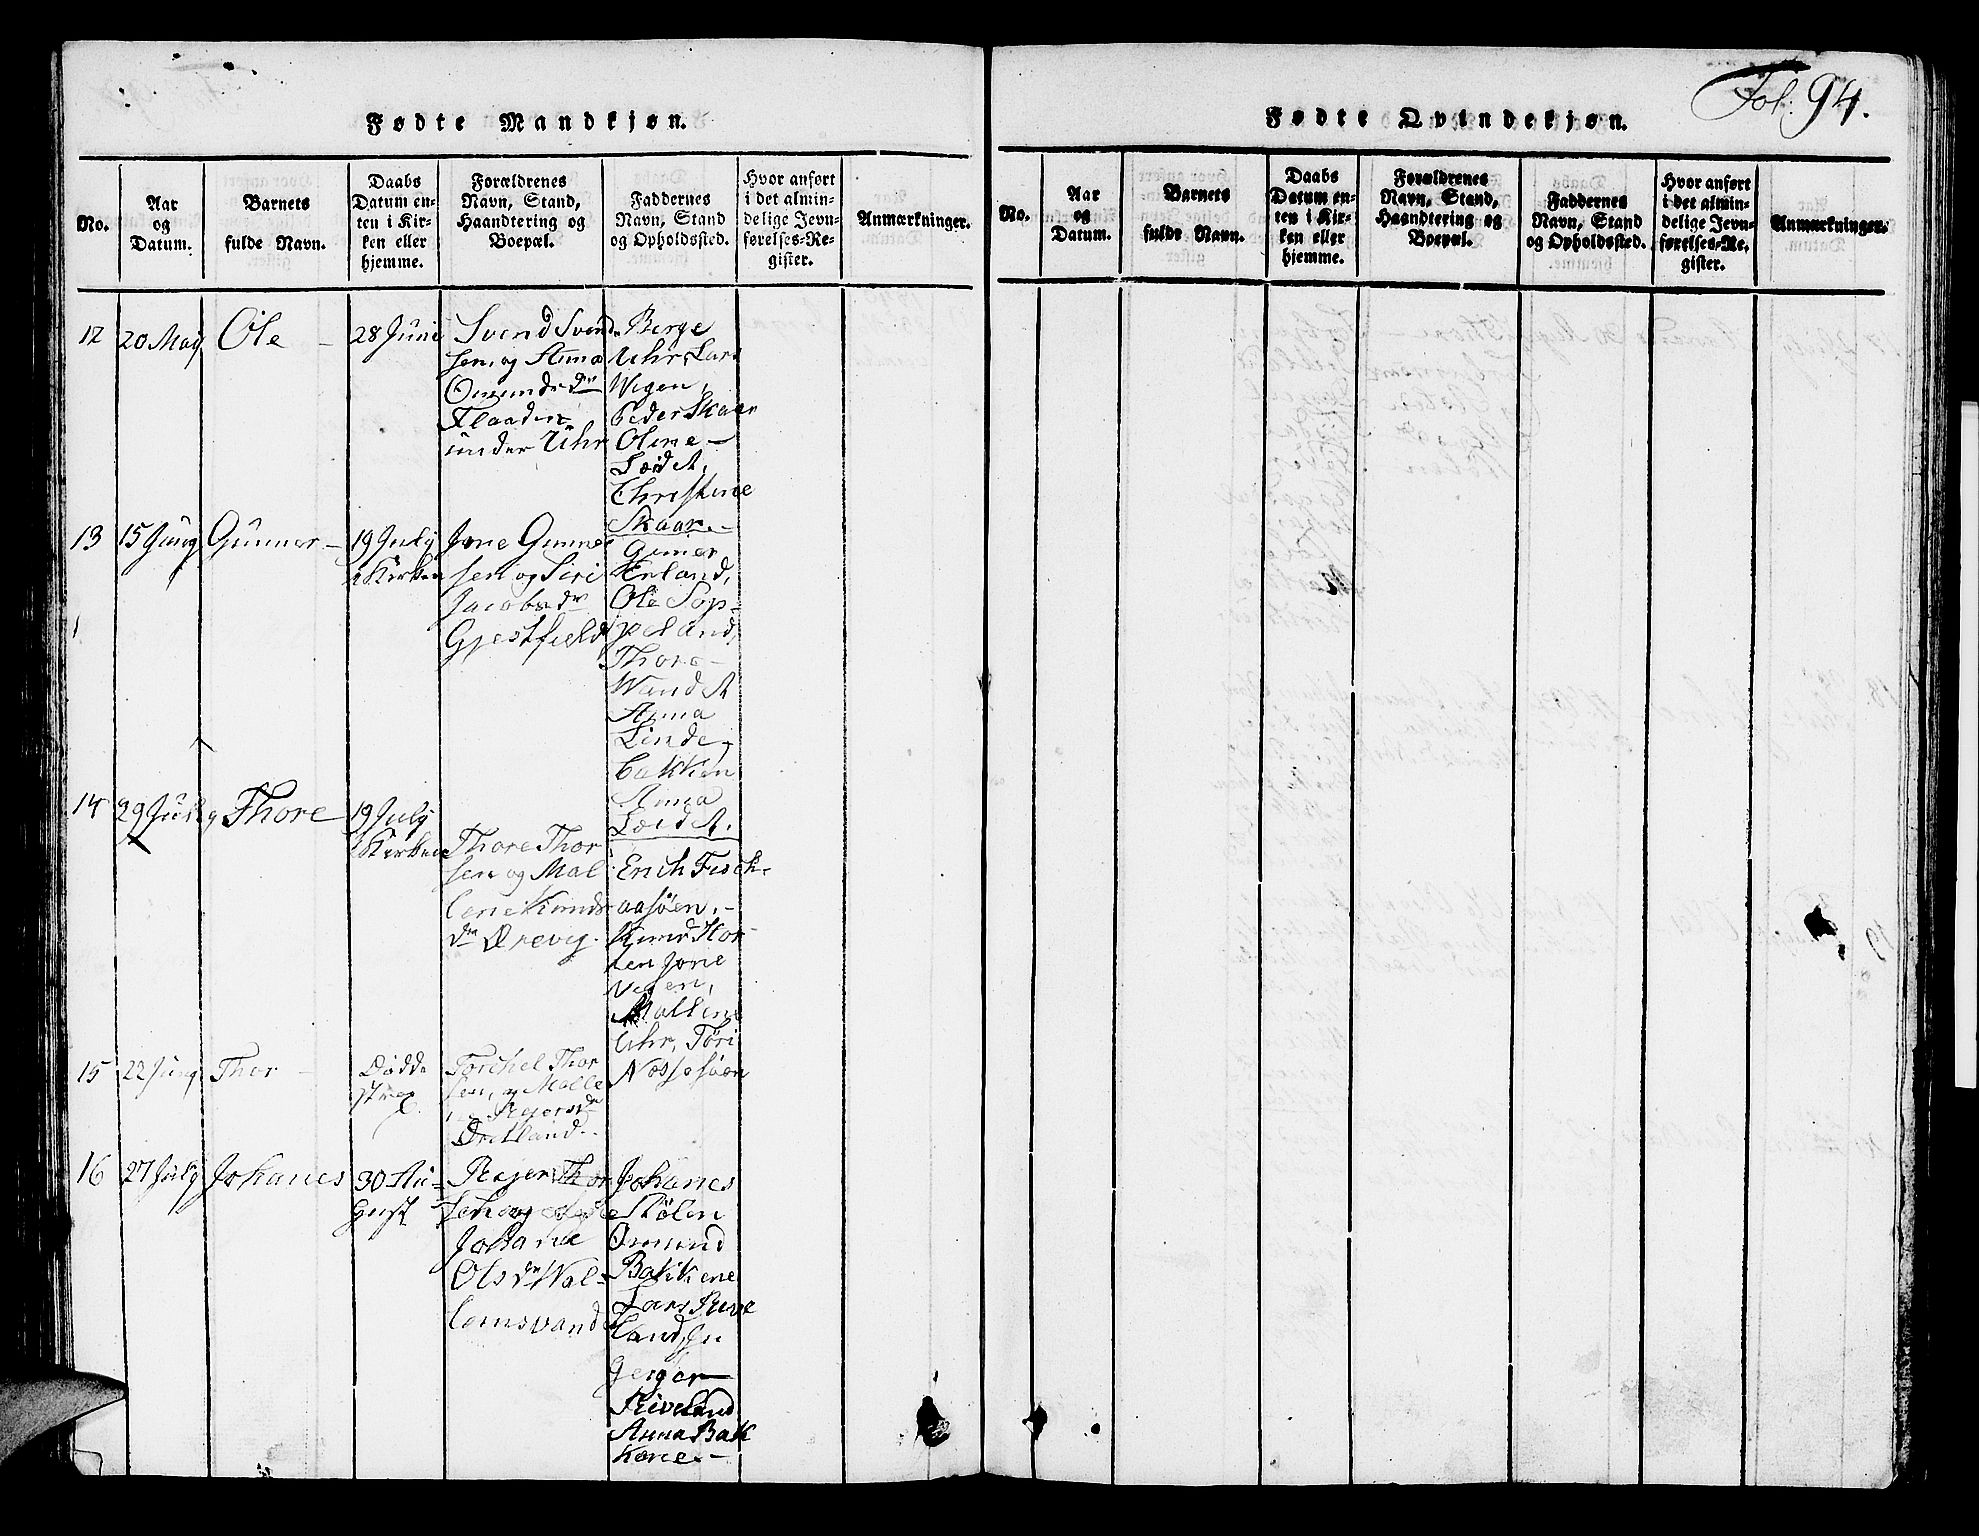 Fol. 94.
Fødte Mandkjøn.
No.
Aar og Datum.
Barnets fulde Navn.
Daabs Datum enten i Kirken eller hjemme.
Forældrenes Navn, Stand, Haandtering og Boepæl.
Faddernes Navn, Stand og Opholdssted.
Hvor anført i det almindelige Jevnførelses-Register.
Anmærkninger.
12
20 May
Ole
28 Junii
Svend Svend
sen og Anna
Omundsdtr
Flaaden
under Uhr
Berge
Uhr, Lars
Wegen,
Peder Skaar
Oline
Leidet,
Christine
Skaar.
13
15 Juny
Gunner
19 July
i Kirken
Jone Gunner
sen og Siri
Jacobsdr
Gjestfield
Guner
Erland,
Ole Sop-
peland,
Thore
Wandet
Anna
Linde-
bakken
Anna
Leidet.
14
29 July
Thore
19 July
i Kirken
Thore Thor
sen og Mal
lene Knuds
dtr Drevig.
Erich Fisk-
aasöen.
Knud Hor-
ten Jone
Vegen,
Mallene
Uhr, Töri
Nessesöen
15
22 Juny
Thor
Dödd
strax
Torchel Thor
sen, og Malle
Drikland.
16
27 July
Johanes
30 Au-
gust
Rejer Thor
sen og
Johane
Olsdtr Wal-
lemsvand
Johanes
Stölen
Omund
Bakkene
Lars Rive
land,
Gerger
Riveland
Anna Bak
kene.
Fødte Qvindekjøn.
No.
Aar og Datum.
Barnets fulde Navn.
Daabs Datum enten i Kirken eller hjemme.
Forældrenes Navn, Stand, Haandtering og Boepæl.
Faddernes Navn, Stand og Opholdssted.
Hvor anført i det almindelige Jevnførelses-Register.
Anmærkninger.